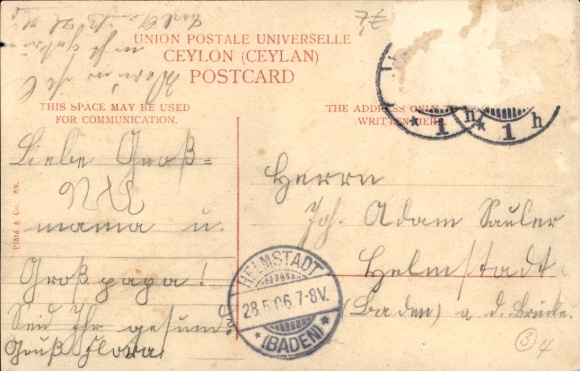 UNION POSTALE UNIVERSELLE
CEYLON (CEYLAN)
POSTCARD
THIS SPACE MAY BE USED
FOR COMMUNICATION.
THE ADDRESS ONLY TO
WRITTEN HERE.
Plâté & Co., 69.
Liebe Groß=
mama u.
Großpapa!
Seid Ihr gesund?
Gruß Flora
Herrn
Joh. Adam Sauler
Helmstadt
(Baden) a. d. Brücke.
HELMSTADT
28.5.06.7-8V.
*(BADEN)*
* 1 h
* 1 h
3
4